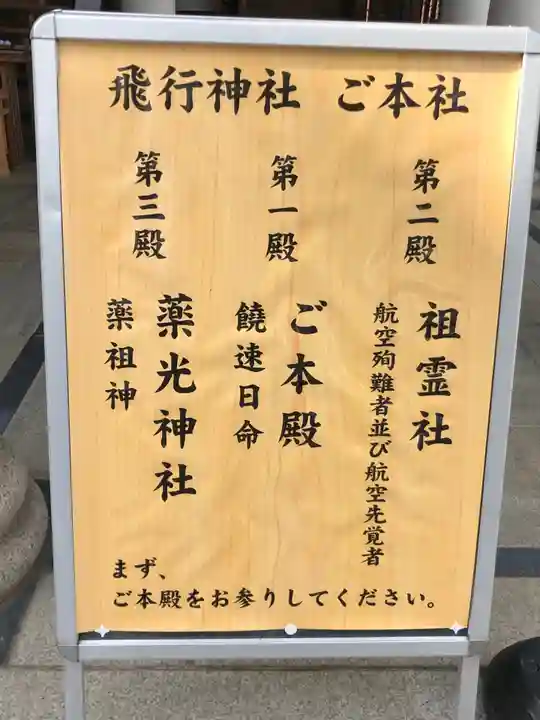 飛行神社 ご本社
第二殿
祖霊社
航空殉難者並び航空先覚者
第一殿
ご本殿
饒速日命
第三殿
薬光神社
薬祖神
まず、
ご本殿をお参りしてください。